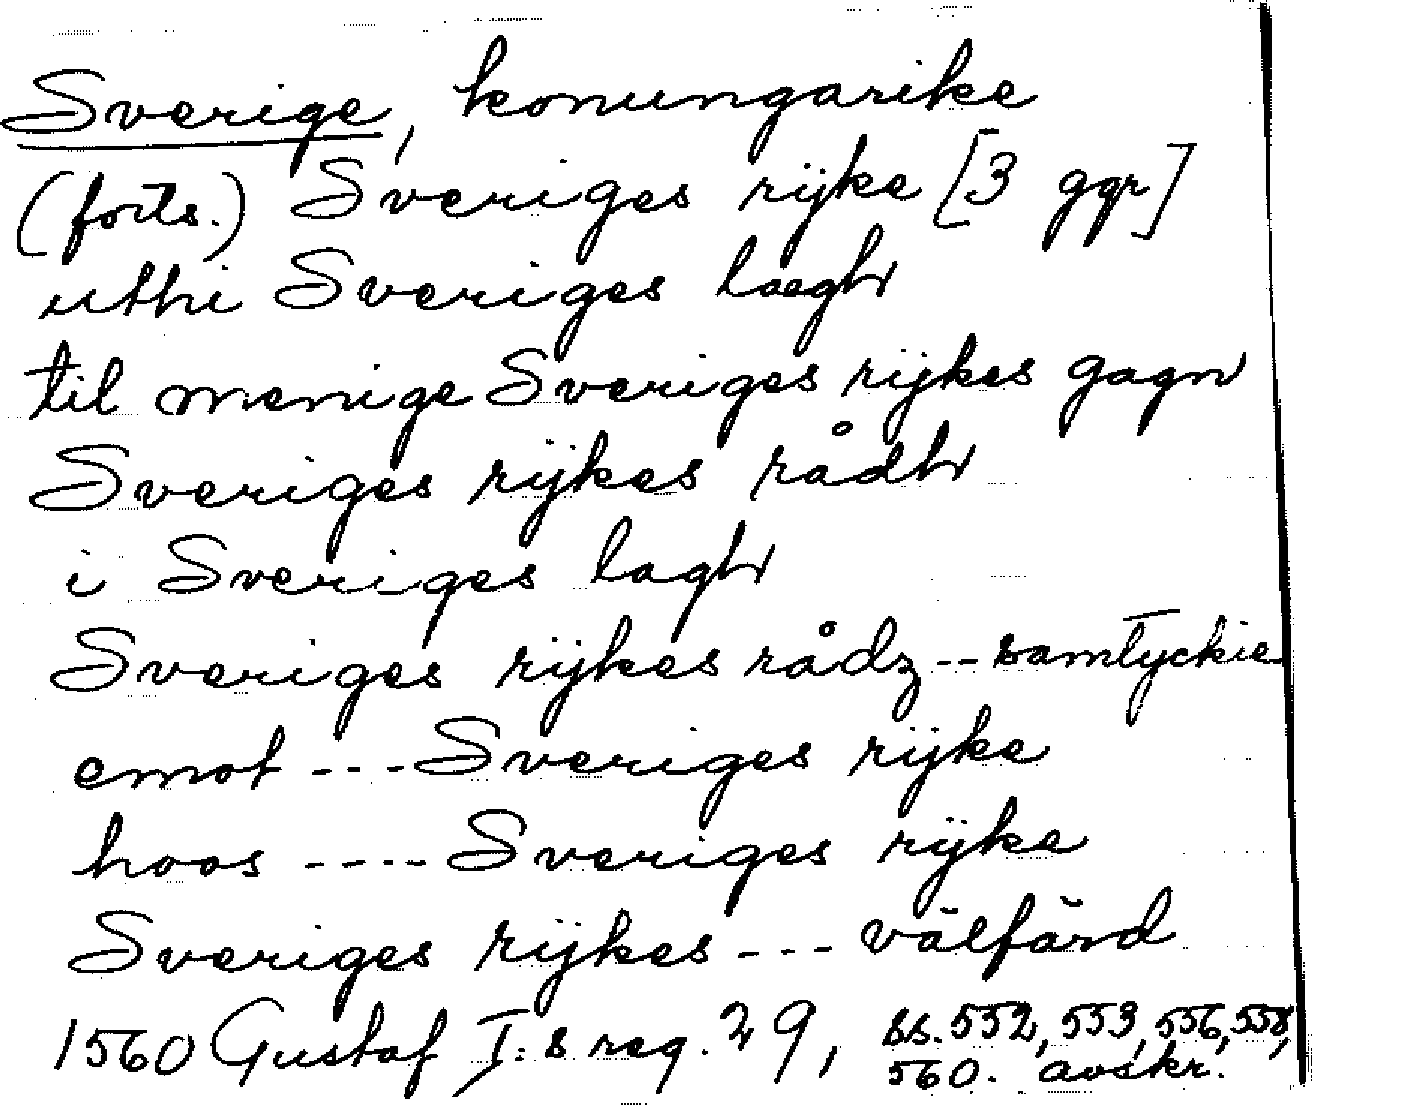 Sverige, konungarike
(forts.) Sveriges rijke [3 ggr]
uthi Sveriges laegh
til menige Sveriges rijkes gagn
Sveriges rijkes rådh
i Sveriges lagh
Sveriges rijkes rådz -- samtyckie
emot --- Sveriges rijke
hoos ---- Sveriges rijke
Sveriges rijkes --- välfärd
1560 Gustaf I:s reg. 29, ss. 552, 553, 556, 558,
560. avskr.